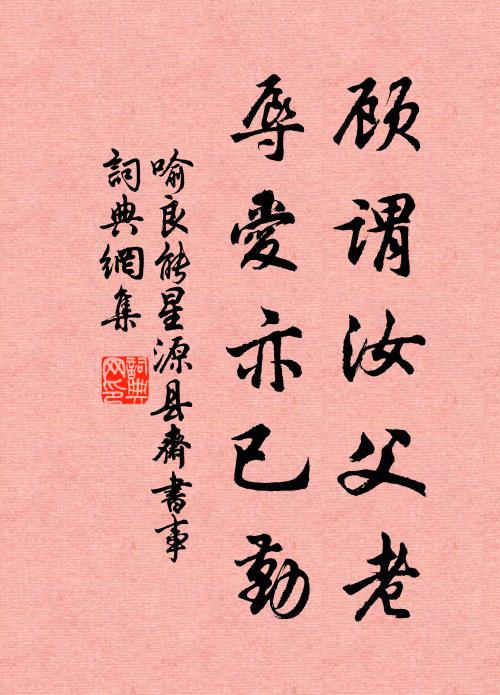 顾谓汝父老
辱爱亦已勤
喻良能星源县斋书事
詞典網集
詞典网印